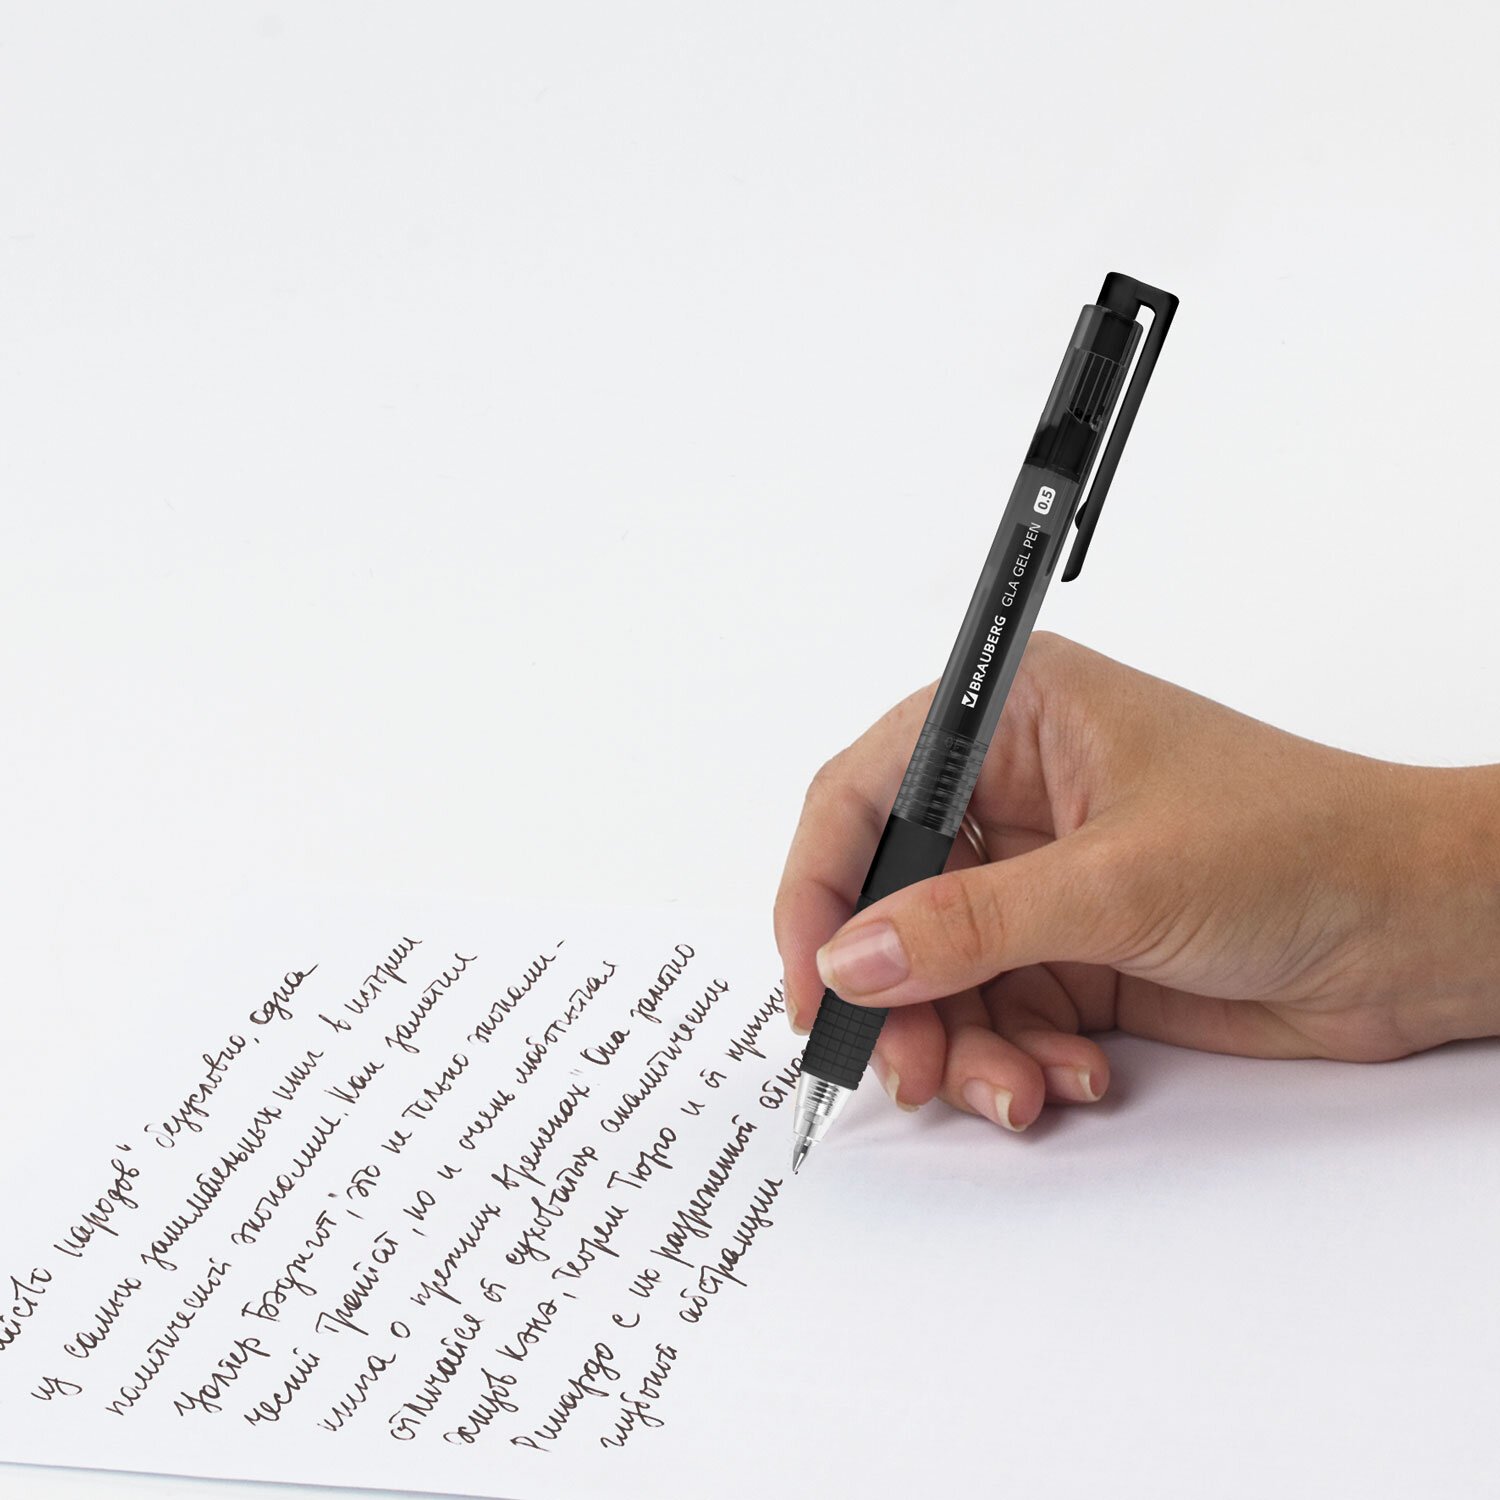 BRAUBERG GLA GEL PEN 0.5
народов" безусловно, одна
из самых занимательных книг в истории
политической экономии. Как заметил
Уолтер Бэджгот, "это не только экономи-
ческий трактат, но и очень любопытная
книга о прежних временах." Она заметно
отличается от суховатых аналитических
эскизов Кэнэ, Теорем Тюрго и от принци
Рикардо с их разреженной атмо
глубокой абстракции